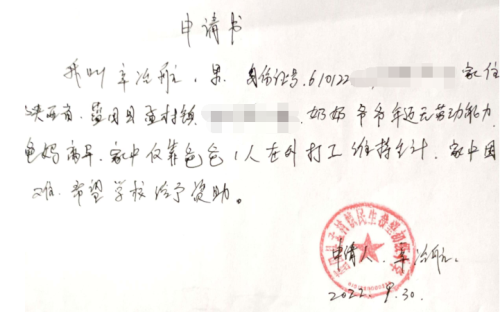 申请书
我叫辛治航，男，身份证号610122，家住
陕西省蓝田县孟村镇，奶奶爷爷年迈无劳动能力，
爸妈离异，家中仅靠爸爸1人在外打工维持生计，家中困
难，希望学校给予资助。
申请人：辛治航。
2022.9.30.